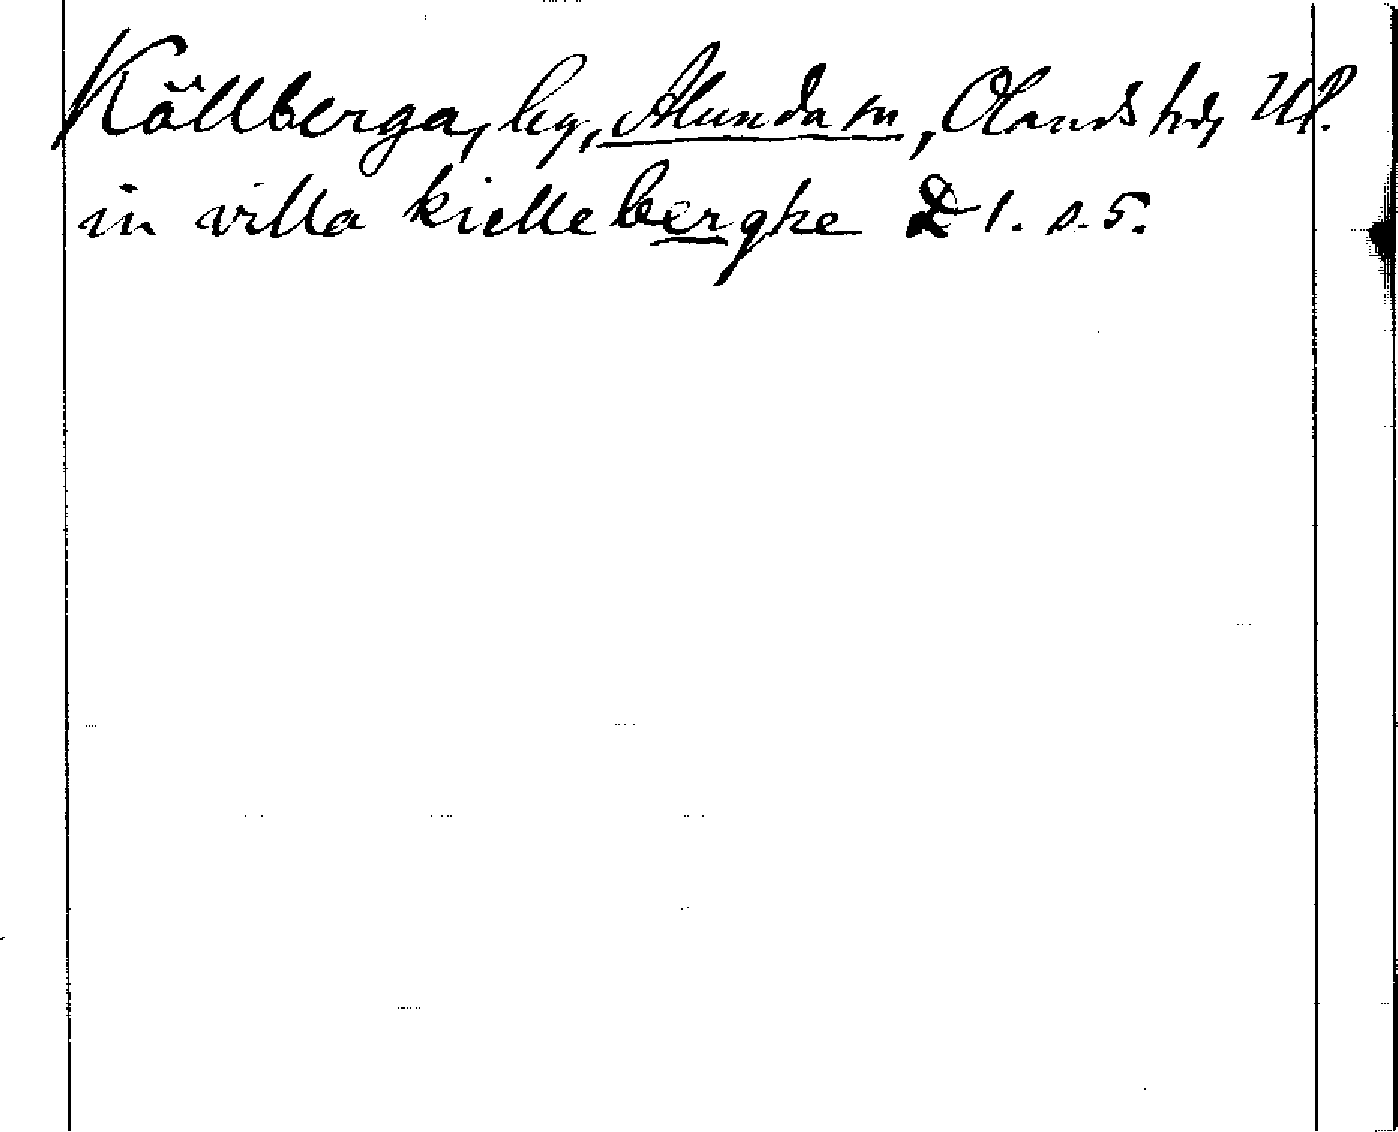 Källberga, by, Alunda sn, Olands hd, Upl.
in villa kielle berghe D 1. s. 5.